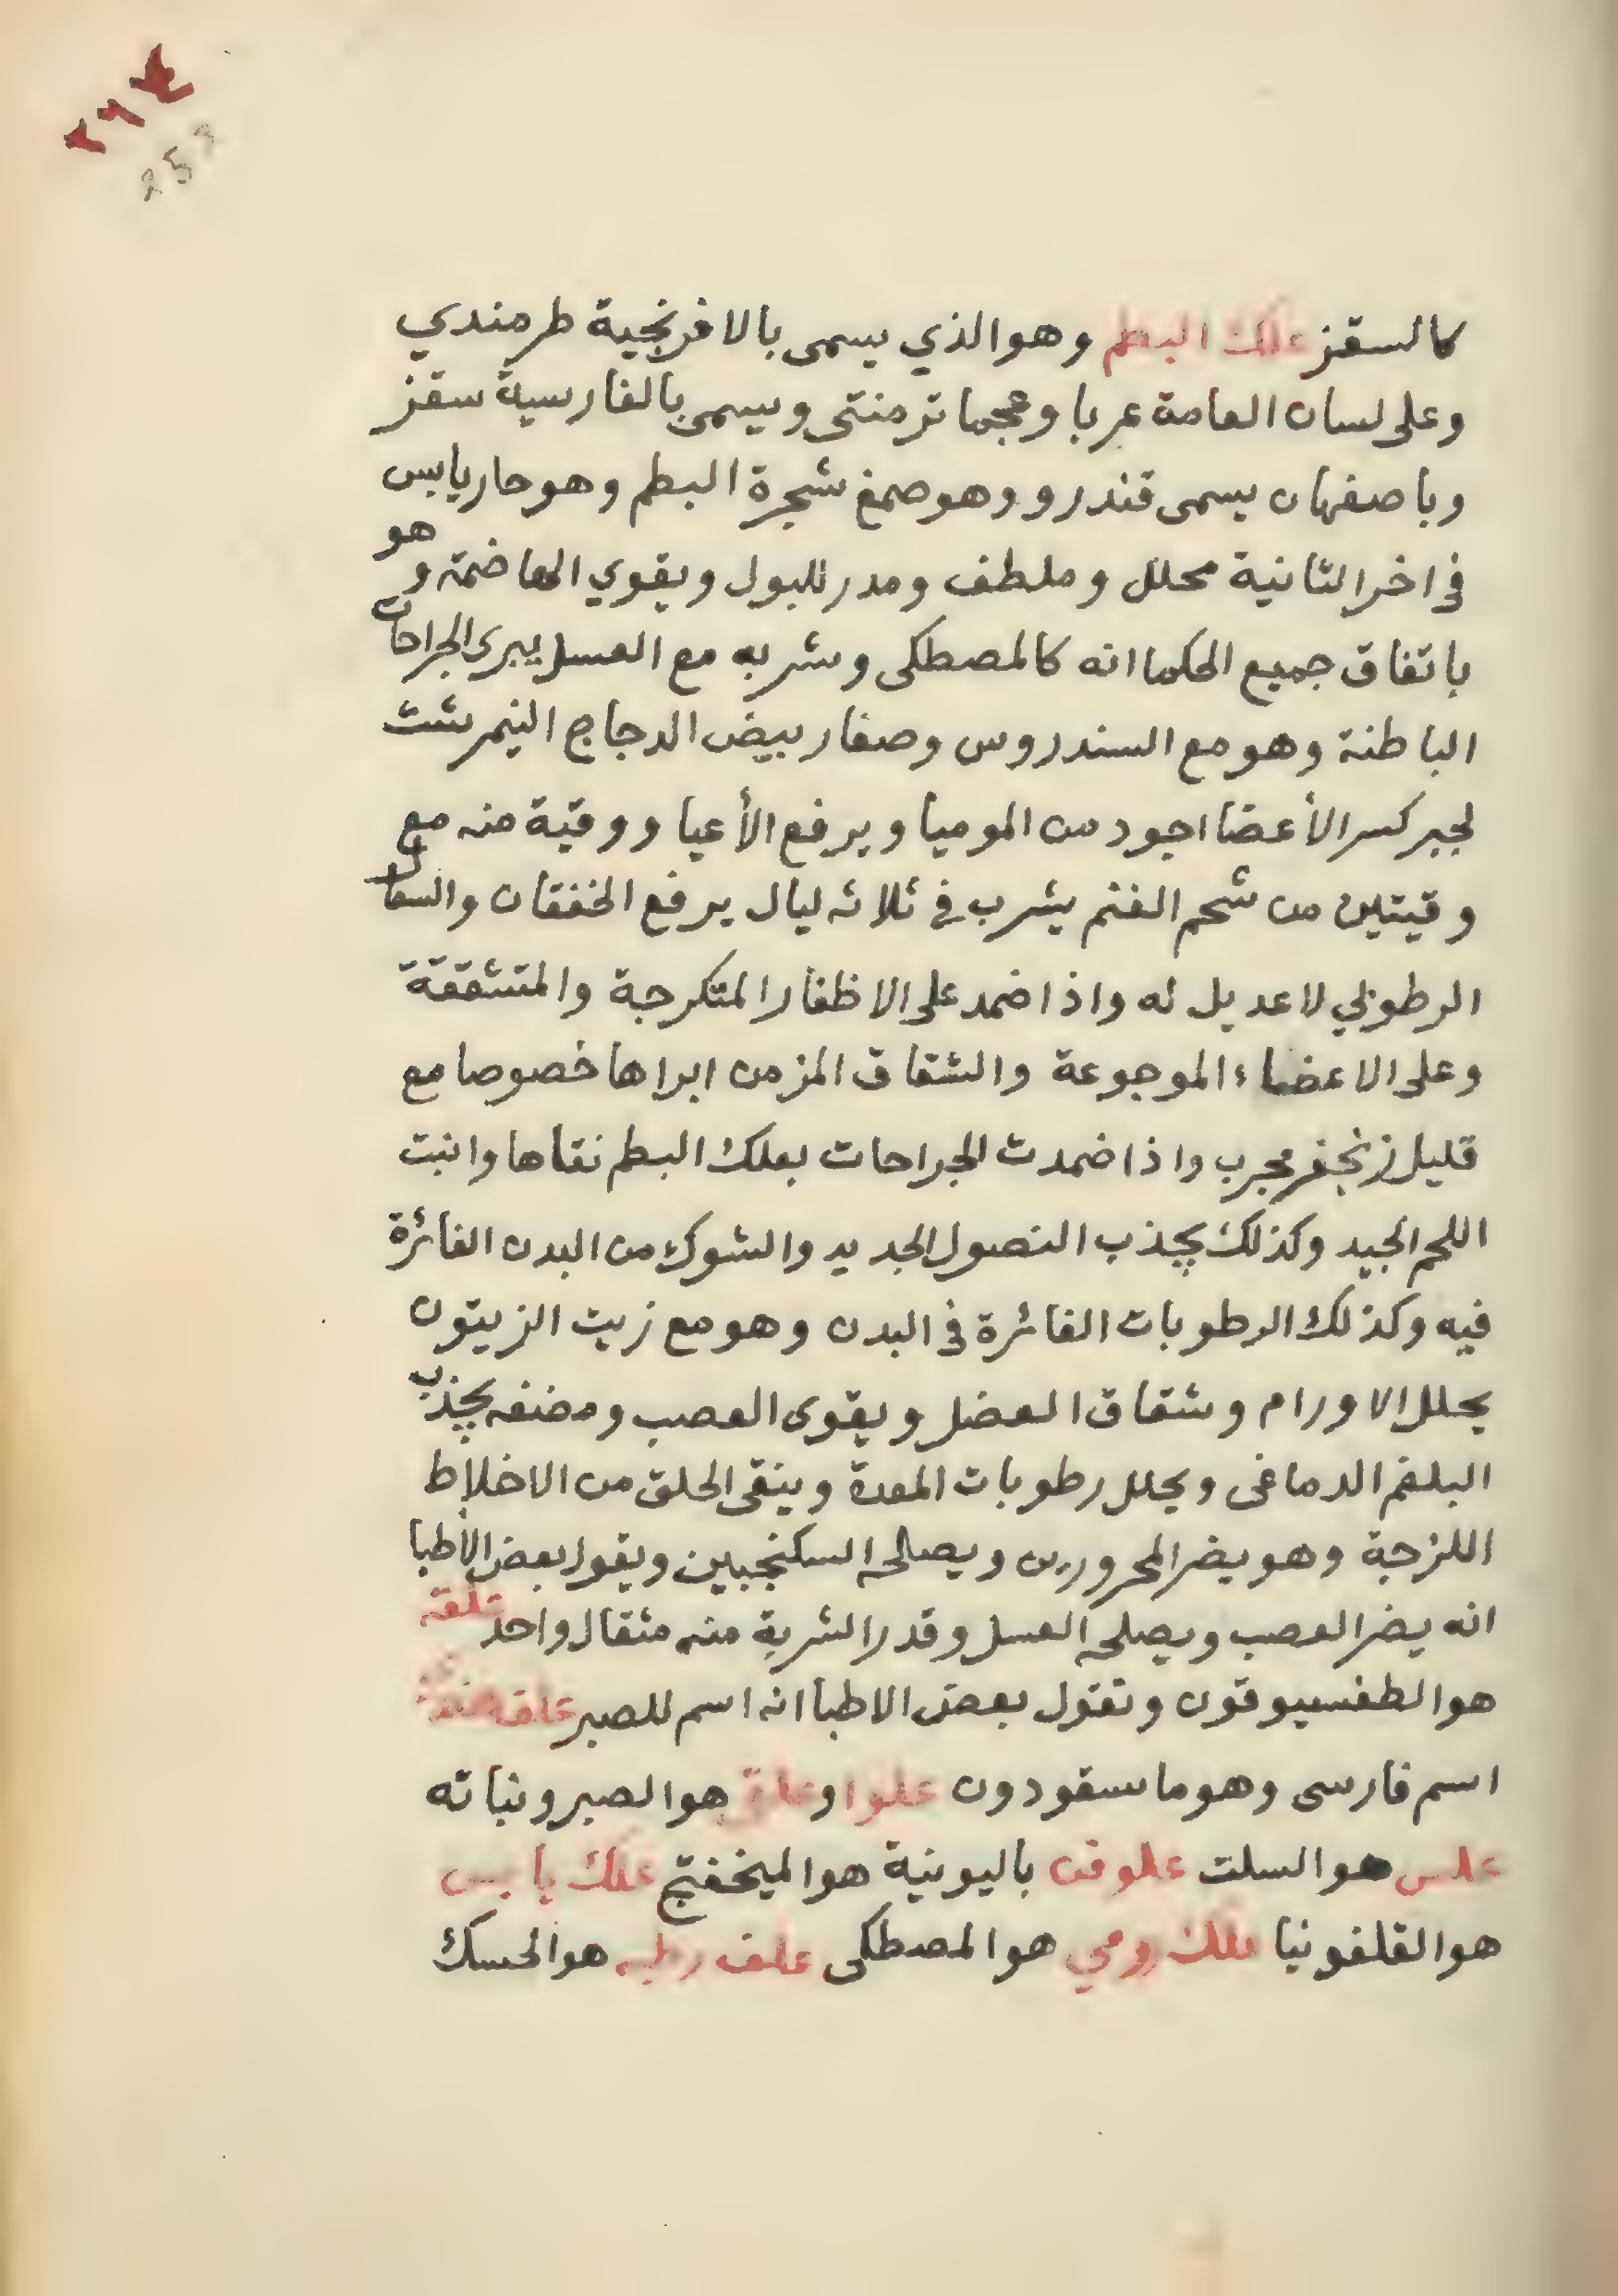 ٢٦٤
كالسقز علك البطم وهو الذي يسمى بالافرنجية طرمندي
وعلى لسان العامة عربا وعجما ترمنتى ويسمى بالفارسية سقز
وباصفهان يسمى قندرو وهو صمغ شجرة البطم وهو حار يابس
فى اخر الثانية محلل وملطف ومدر للبول ويقوي الهاضمة وهو
باتفاق جميع الحكما انه كالمصطكى وشربه مع العسل يبرى الجراحات
الباطنة وهو مع السندروس وصفار بيض الدجاج النيمرشت
لجبر كسر الأعضا اجود من الموميا ويرفع الأعيا ووقية منه مع
وقيتين من شحم الغنم يشرب في ثلاثه ليال يرفع الخفقان والسعال
الرطوبي لا عديل له واذا ضمد على الاظفار المتكرجة والمتشققة
وعلى الاعضاء الموجوعة والشقاق المزمن ابراها خصوصا مع
قليل زنجفر مجرب واذا ضمدت الجراحات بعلك البطم نقاها وانبت
اللحم الجيد وكذلك يجذب النصول الجديد والشوك من البدن الغائرة
فيه وكذلك الرطوبات الغائرة فى البدن وهو مع زيت الزيتون
يحلل الاورام وشقاق العضل ويقوى العصب ومضغه يجذب
البلغم الدماغى ويحلل رطوبات المعدة وينقى الحلق من الاخلاط
اللزجة وهو يضر المحرورين ويصلحه السكنجبين ويقول بعض الأطبا
انه يضر العصب ويصلحه العسل وقدر الشربة منه مثقال واحد
هو الطفسيوقون وتقول بعض الاطبا انه اسم للصبر
اسم فارسى وهو ماسقودون علوا و هو الصبر ونباته
علس هو السلت علوقن باليونية هو الميخفتج علك يابس
هو القلفونيا علك رومي هو المصطكى علف هو الحسك